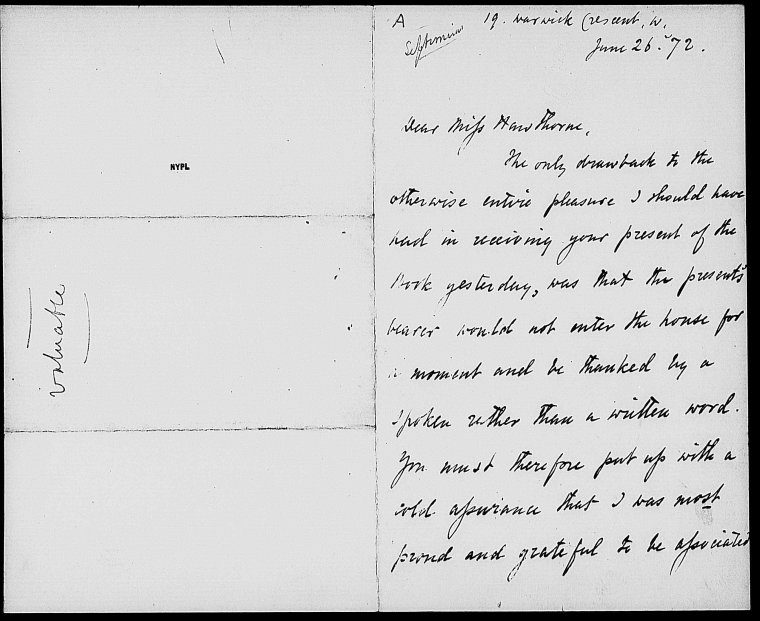 NYPL
valuable
A
Septimius
19. Warwick Crescent, W.
June 26. '72.
Dear Miss Hawthorne,
The only drawback to the
otherwise entire pleasure I should have
had in receiving your present of the
Book yesterday, was that the present's
bearer would not enter the house for
a moment and be thanked by a
spoken rather than a written word.
You must therefore put up with a
cold assurance that I was most
proud and grateful to be associated